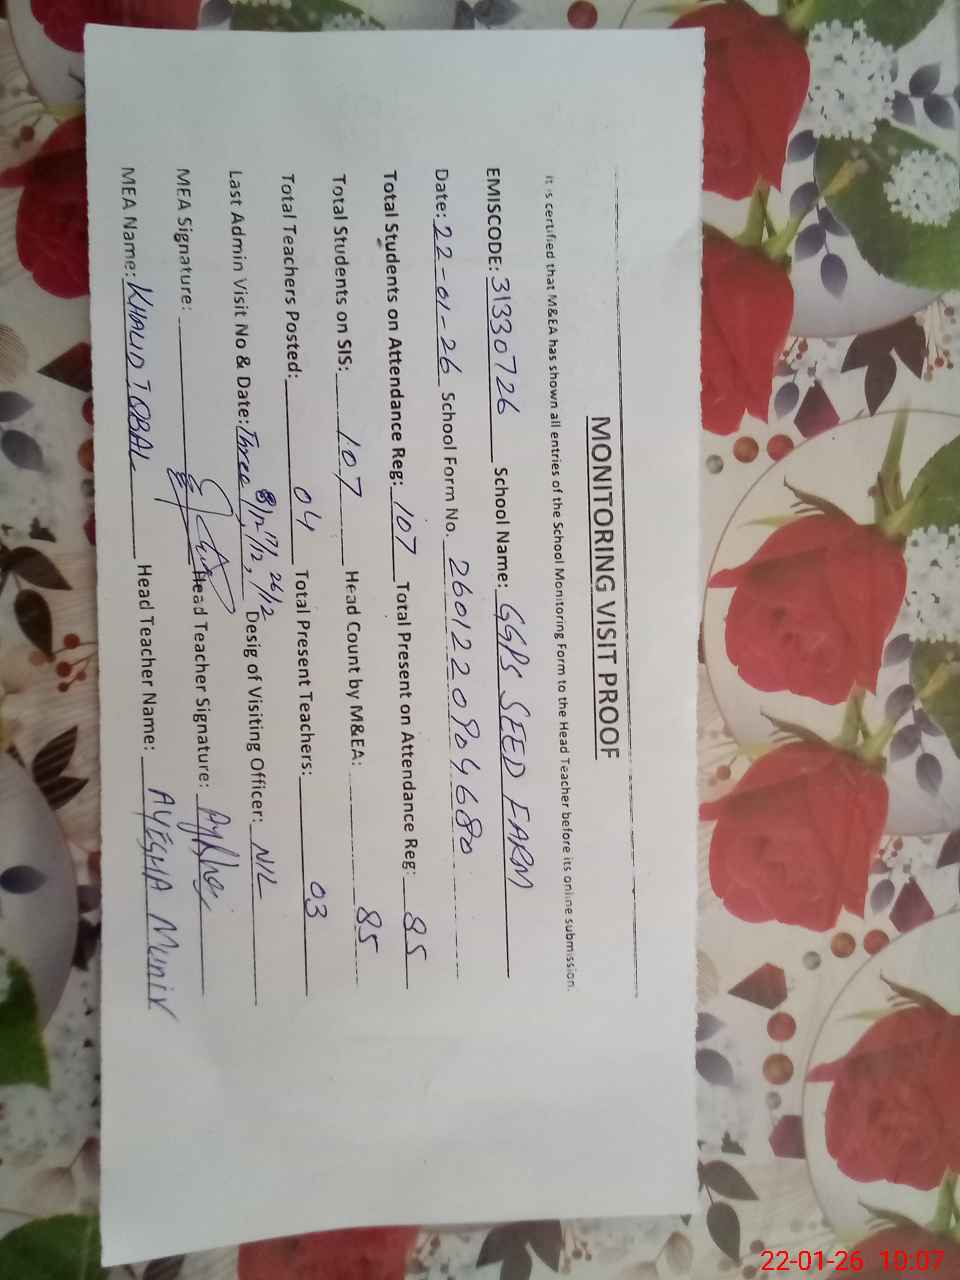 MONITORING VISIT PROOF
It is certified that M&EA has shown all entries of the School Monitoring Form to the Head Teacher before its online submission.
EMISCODE: 31330726 School Name: GGPS SEED FARM
Date: 22-01-26 School Form No. 2601220904680
Total Students on Attendance Reg: 107 Total Present on Attendance Reg: 85
Total Students on SIS: 107 Head Count by M&EA: 85
Total Teachers Posted: 04 Total Present Teachers: 03
Last Admin Visit No & Date: Three 8/12, 17/12, 26/12 Desig of Visiting Officer: NIL
MEA Signature: Head Teacher Signature:
MEA Name: KHALID IQBAL Head Teacher Name: AYESHA Munir
22-01-26 10:07